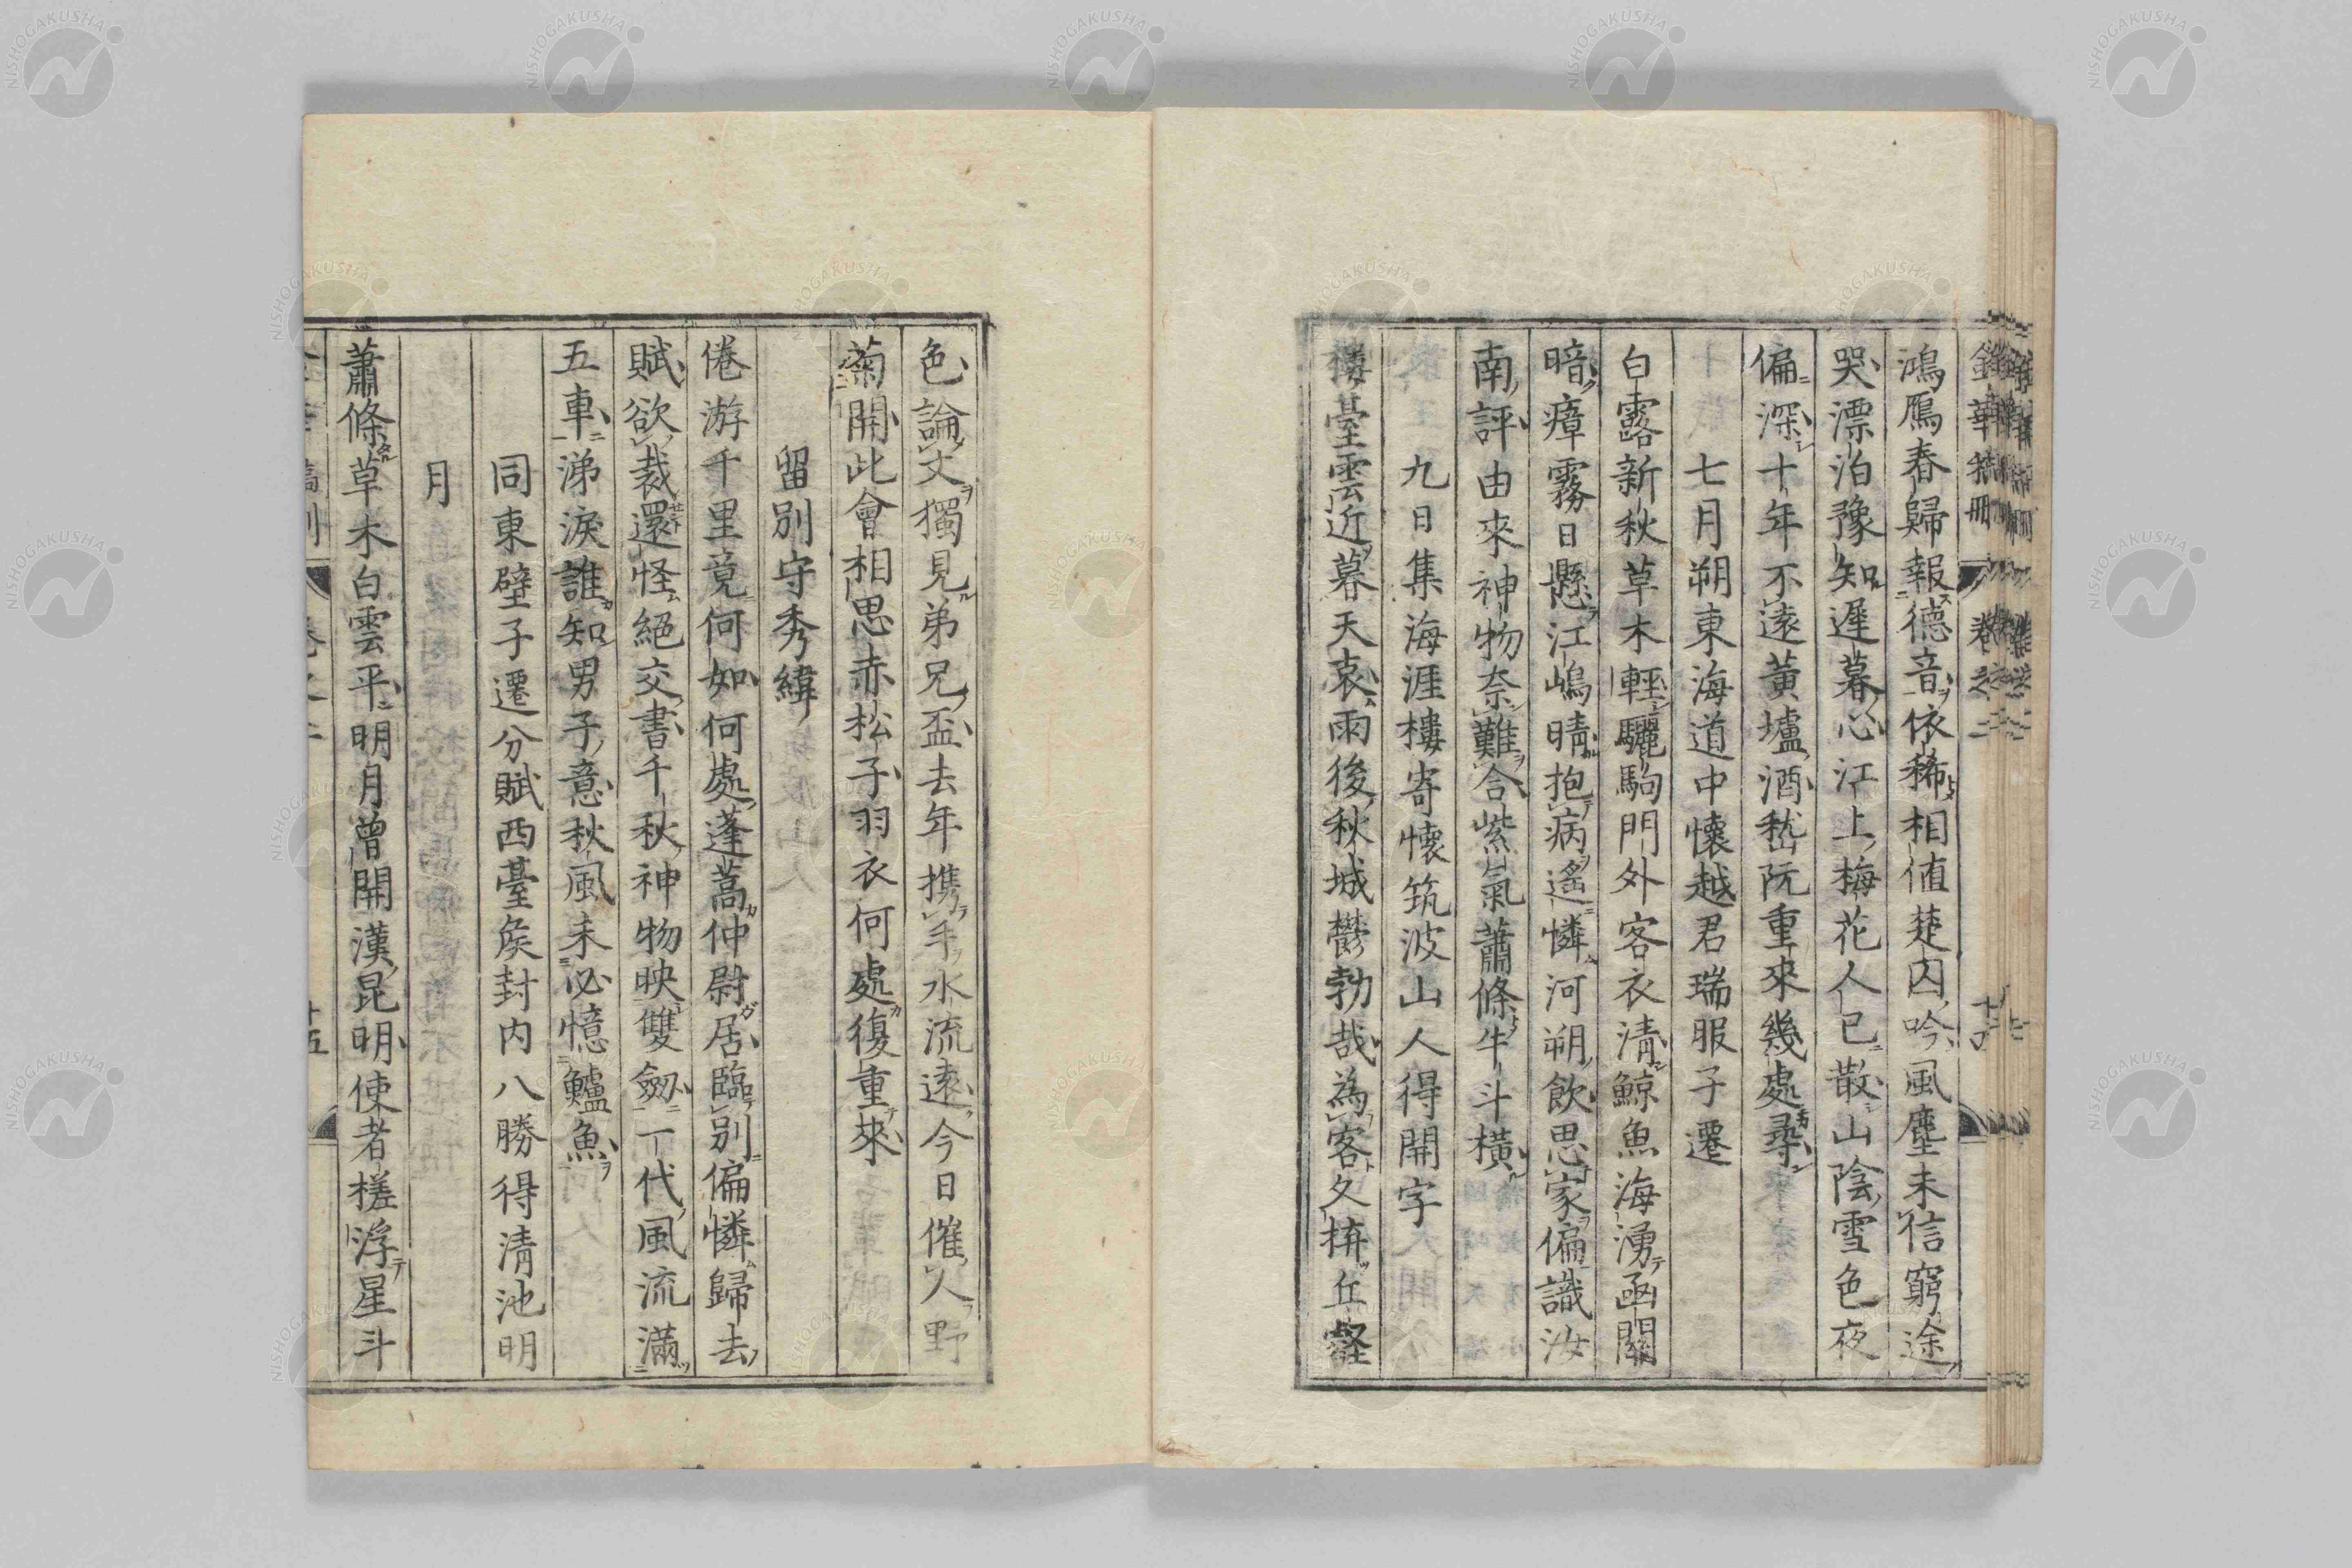 鴻鴈春歸報德音依稀相値楚囚吟風塵未信窮途
哭漂泊豫知遲暮心江上梅花人已散山陰雪色夜
偏深十年不遠黃壚酒嵇阮重來幾處尋
七月朔東海道中懷越君瑞服子遷
白露新秋草木輕驪駒門外客衣清鯨魚海湧函關
暗瘴霧日懸江嶋晴抱病遙憐河朔飲思家偏識汝
南評由來神物奈難合紫氣蕭條牛斗橫
九日集海涯樓寄懷筑波山人得開字
樓臺雲近暮天哀雨後秋城鬱勃哉為客久拚丘壑
色論文獨見弟兄盃去年攜手水流遠今日催人野
菊開此會相思赤松子羽衣何處復重來
留別守秀緯
倦游千里竟何如何處蓬蒿仲尉居臨別偏憐歸去
賦欲裁還怪絕交書千秋神物映雙劔一代風流滿
五車涕淚誰知男子意秋風未必憶鱸魚
同東壁子遷分賦西臺矦封內八勝得清池明
月
蕭條草木白雲平明月曾開漢昆明使者槎浮星斗
NISHOGAKUSHA